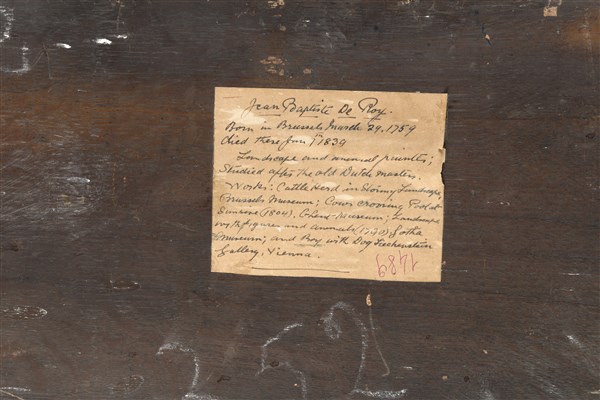 Jean Baptiste De Roy.
Born in Brussels March 29, 1759
died there Jan. 1839
Landscape and animal painter;
Studied after the old Dutch masters.
Works: Cattle Herd in Stormy Landscape,
Brussels Museum; Cows crossing Pool at
Sunrise (1804), Ghent Museum; Landscape
with figures and animals (1790) Gotha
Museum; and Boy with Dog Liechtenstein
Gallery, Vienna.
1489
252